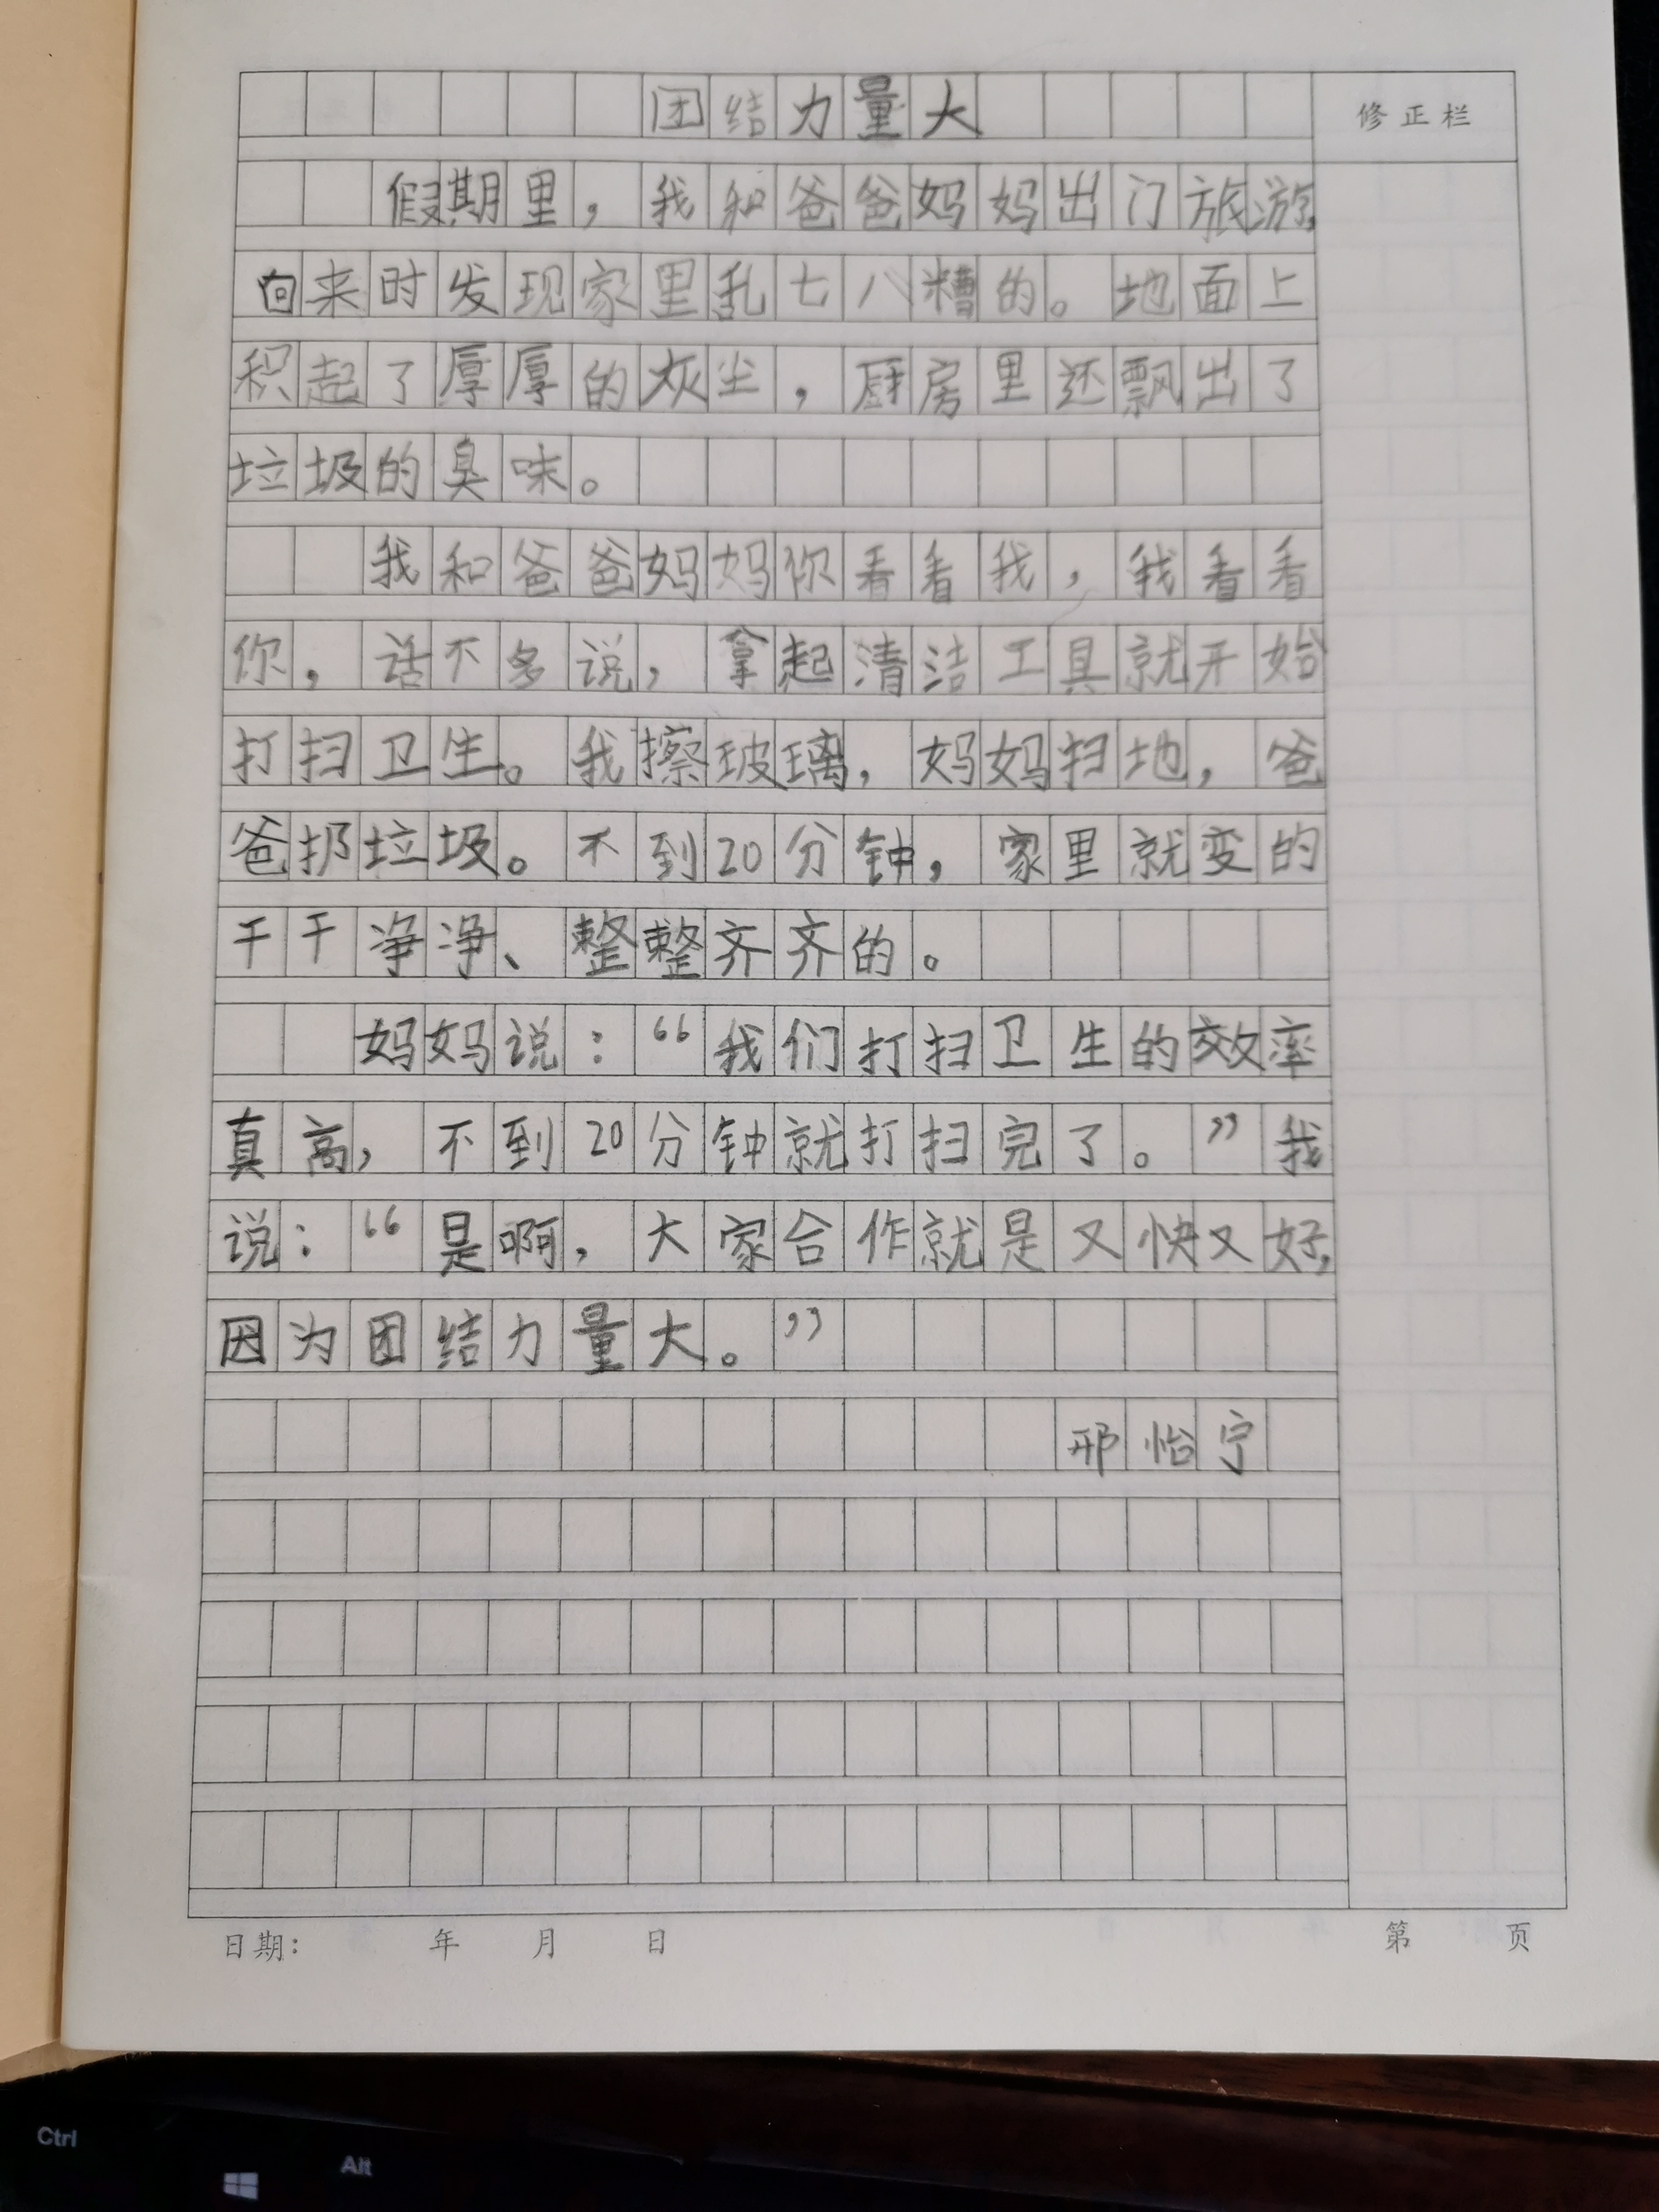 团结力量大
修正栏
假期里，我和爸爸妈妈出门旅游，
回来时发现家里乱七八糟的。地面上
积起了厚厚的灰尘，厨房里还飘出了
垃圾的臭味。
我和爸爸妈妈你看看我，我看看
你，话不多说，拿起清洁工具就开始
打扫卫生。我擦玻璃，妈妈扫地，爸
爸扔垃圾。不到20分钟，家里就变的
干干净净、整整齐齐的。
妈妈说：“我们打扫卫生的效率
真高，不到20分钟就打扫完了。”我
说：“是啊，大家合作就是又快又好，
因为团结力量大。”
邢怡宁
日期： 年 月 日
第 页
Ctrl
Alt